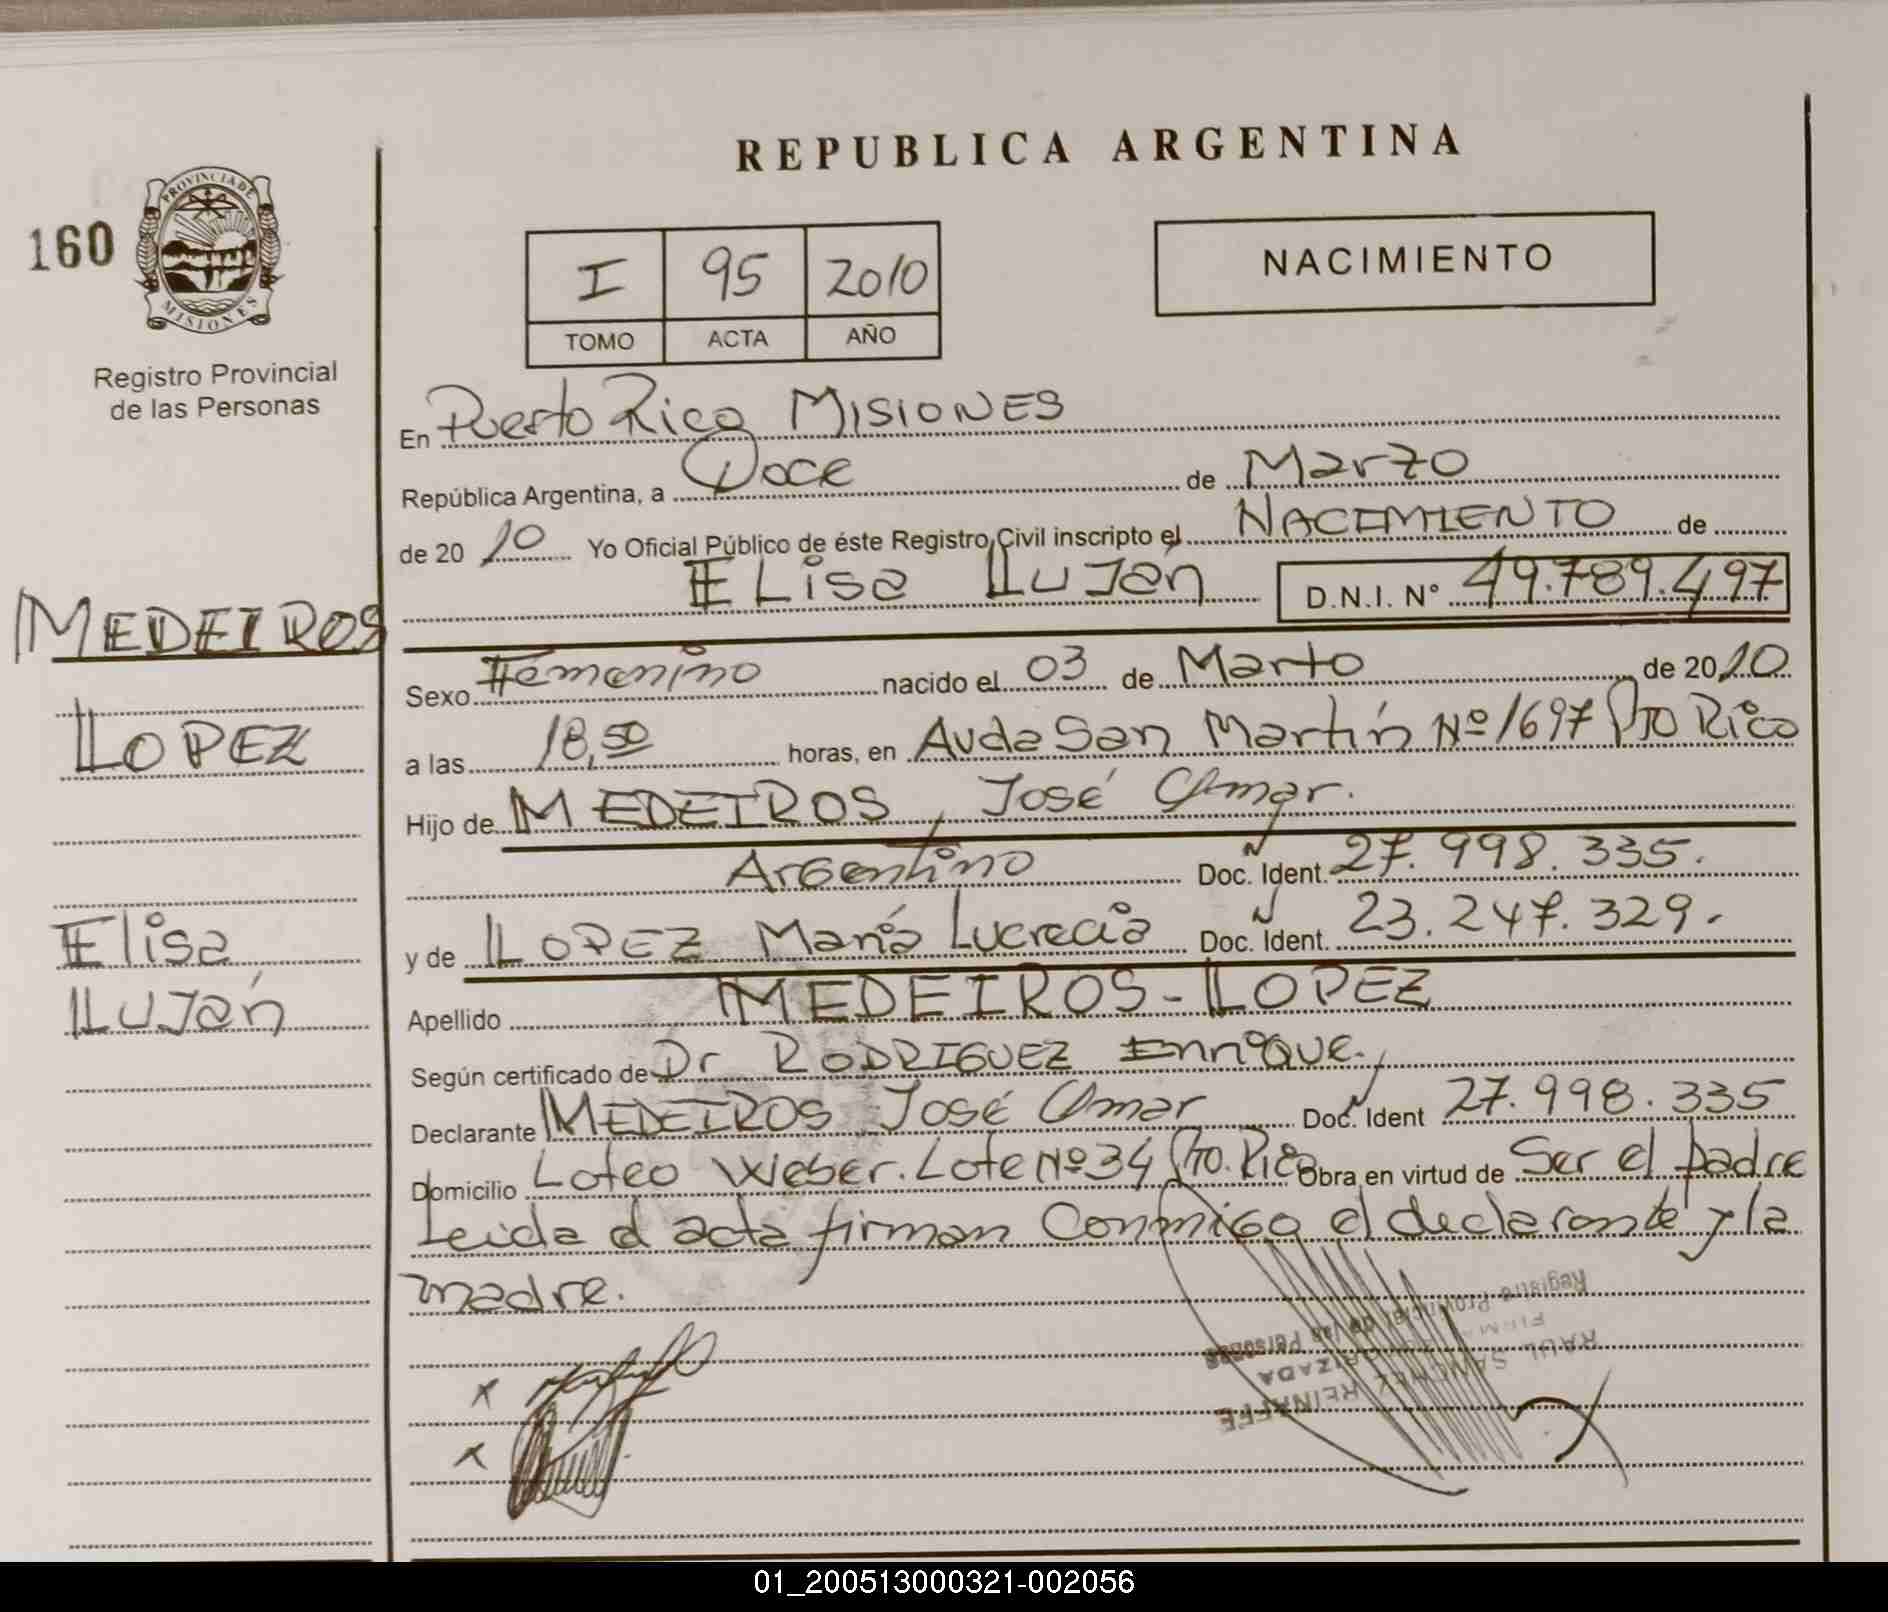 REPUBLICA ARGENTINA
160
PROVINCIA DE
MISIONES
Registro Provincial
de las Personas
I 95 2010
TOMO ACTA AÑO
NACIMIENTO
En Puerto Rico MISIONES
República Argentina, a Doce de Marzo
de 20 10 Yo Oficial Público de éste Registro Civil inscripto el NACIMIENTO de
Elisa LLuJán D.N.I. N° 49.789.497
MEDEIROS
LOPEZ
Elisa
LLuJán
Sexo Femenino nacido el 03 de Marzo de 20 10
a las 18,50 horas, en Avda San Martín Nº 1697 Pto Rico
Hijo de MEDEIROS, José Omar.
Argentino Doc. Ident. 27.998.335.
y de LOPEZ María Lucrecia Doc. Ident. 23.247.329.
Apellido MEDEIROS - LOPEZ
Según certificado de Dr RODRIGUEZ Enrique.
Declarante MEDEIROS José Omar Doc. Ident 27.998.335
Domicilio Loteo Weber. Lote Nº 34 Pto. Rico Obra en virtud de Ser el padre
Leida el acta firman Conmigo el declarante y la
madre.
x
x
RAUL SANCHEZ REINAFFE
FIRMA AUTORIZADA
Registro Provincial de las Personas
01_200513000321-002056